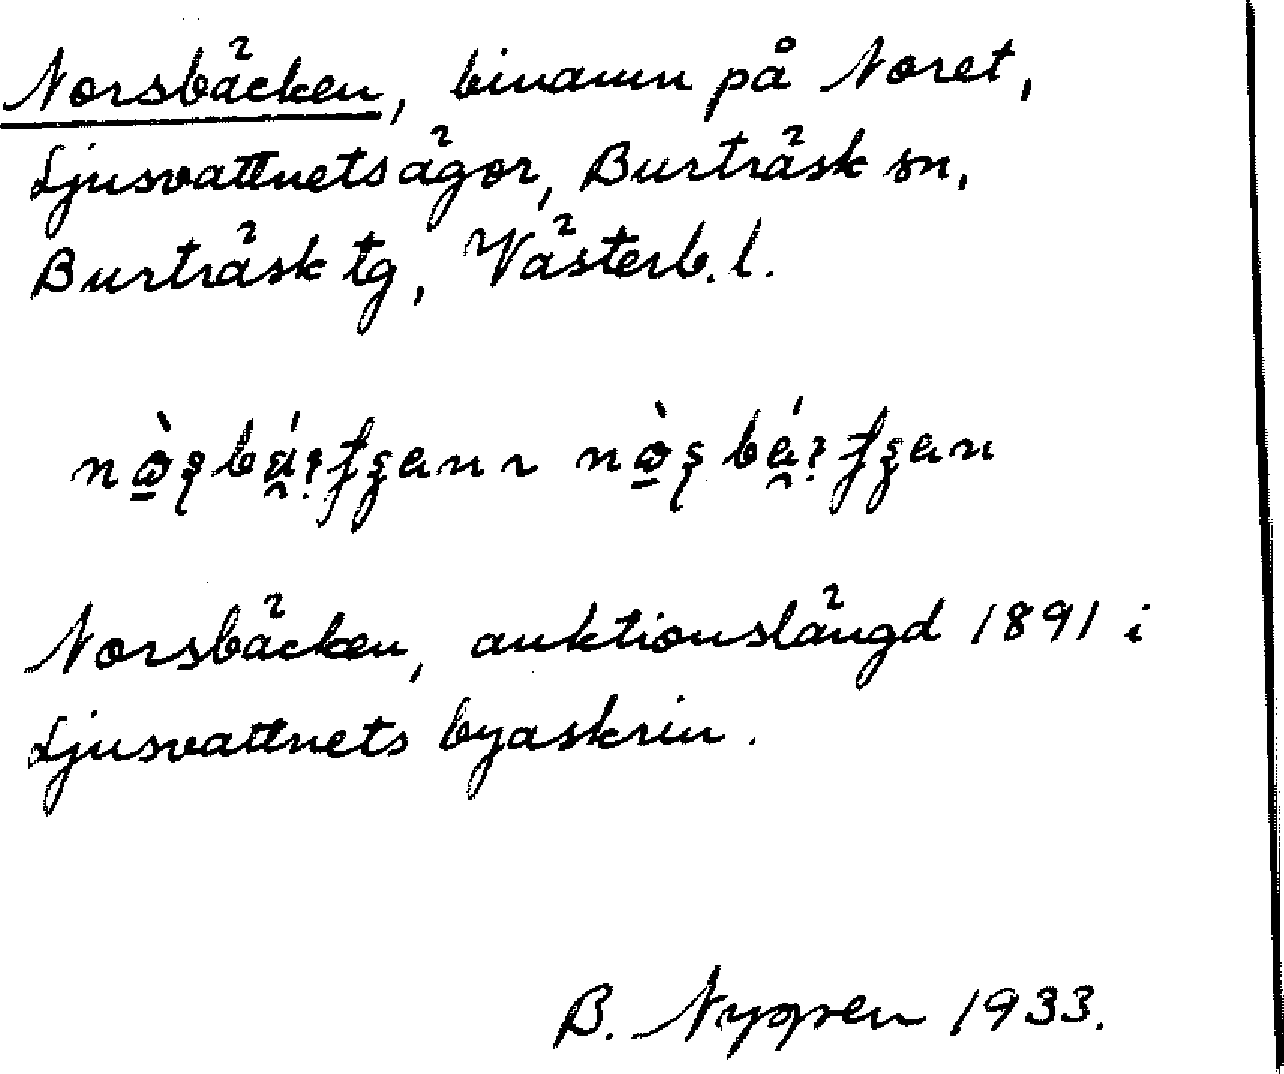 Norsbäcken, binamn på Noret,
Ljusvattnets ägor, Burträsk sn,
Burträsk tg, Västerb. l.
Norsbäcken, auktionslängd 1891 i
Ljusvattnets byaskrin.
B. Nygren 1933.